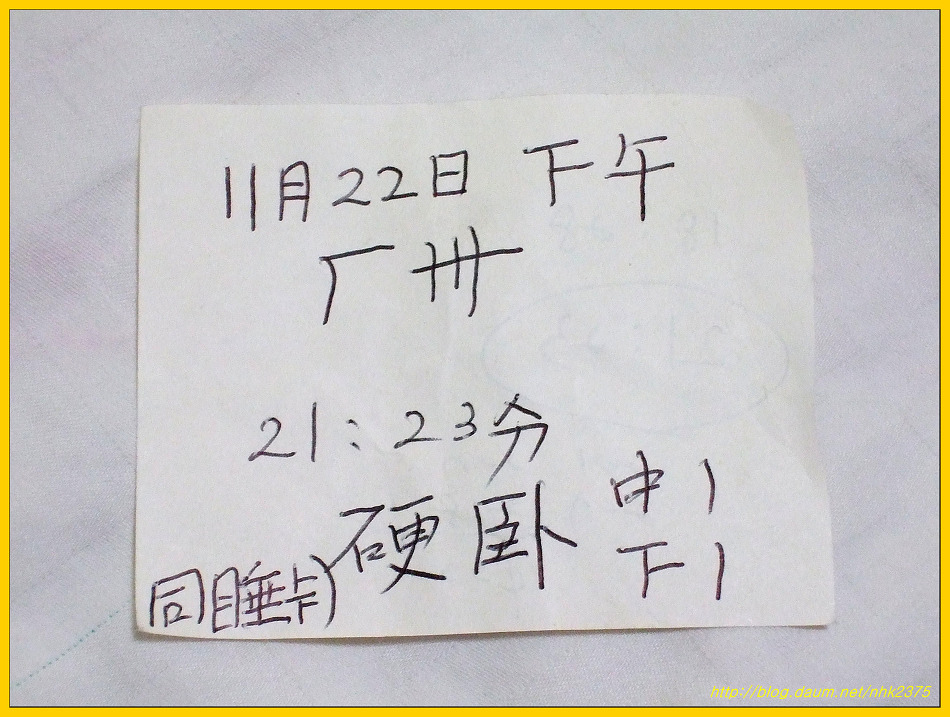 11月22日 下午
广州
21:23分
中1
硬卧
下1
同睡卡)
http://blog.daum.net/nhk2375